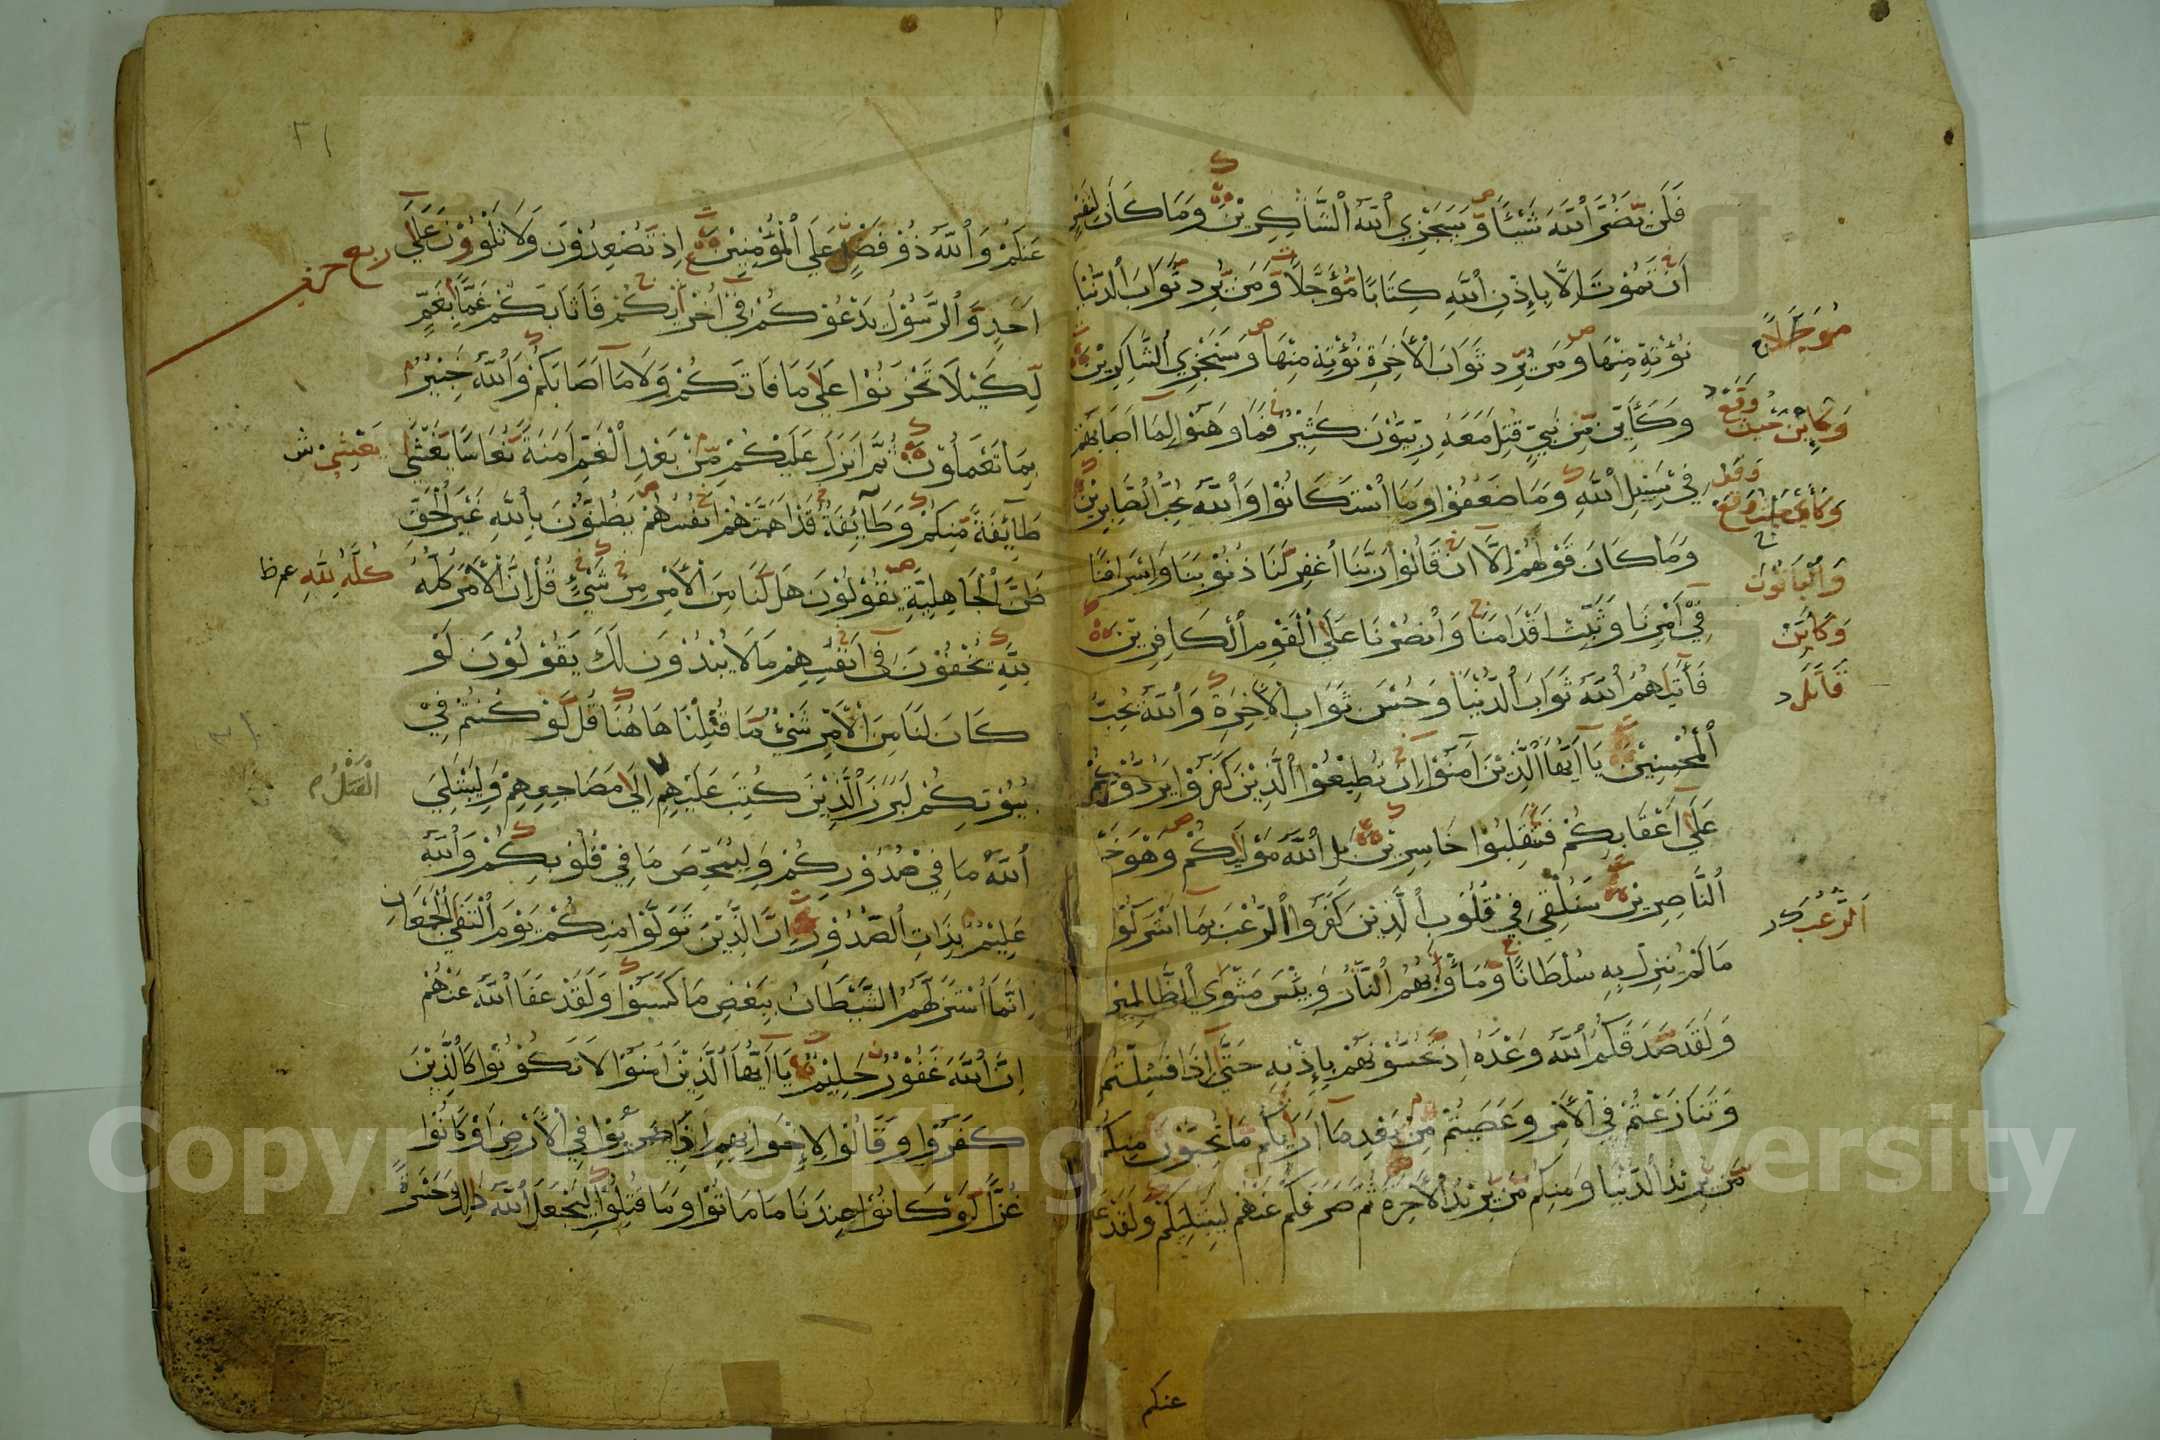 فَلَن يَّضُرَّ ٱللَّهَ شَيْـًٔا وَّسَيَجْزِي ٱللَّهُ ٱلشَّاكِرِيْنَ وَمَا كَانَ لِنَفْسٍ
اَنْ تَمُوْتَ اِلَّا بِاِذْنِ ٱللَّهِ كِتَابًا مُّؤَجَّلًا وَّمَنْ يُّرِد ثَّوَابَ ٱلدُّنْيَا
نُؤْتِهٖ مِنْهَا وَمَنْ يُّرِد ثَوَابَ ٱلْاٰخِرَةِ نُؤْتِهٖ مِنْهَا وَسَنَجْزِي ٱلشَّاكِرِيْنَ
وَكَأَيِّنْ مِّنْ نَّبِيٍّ قُتِلَ مَعَهٗ رِبِّيُّوْنَ كَثِيْرٌ فَمَا وَهَنُوْا لِمَا اَصَابَهُمْ
فِيْ سَبِيْلِ ٱللَّهِ وَمَا ضَعُفُوْا وَمَا ٱسْتَكَانُوْا وَٱللَّهُ يُحِبُّ ٱلصَّابِرِيْنَ
وَمَا كَانَ قَوْلَهُمْ اِلَّا اَنْ قَالُوْا رَبَّنَا ٱغْفِر لَّنَا ذُنُوْبَنَا وَاِسْرَافَنَا
فِيْ اَمْرِنَا وَثَبِّتْ اَقْدَامَنَا وَٱنْصُرْنَا عَلَى ٱلْقَوْمِ ٱلْكَافِرِيْنَ
فَاٰتٰىهُمُ ٱللَّهُ ثَوَابَ ٱلدُّنْيَا وَحُسْنَ ثَوَابِ ٱلْاٰخِرَةِ وَٱللَّهُ يُحِبُّ
ٱلْمُحْسِنِيْنَ يَآ اَيُّهَا ٱلَّذِيْنَ اٰمَنُوْٓا اِنْ تُطِيْعُوا ٱلَّذِيْنَ كَفَرُوْا يَرُدُّوْكُمْ
عَلٰٓى اَعْقَابِكُمْ فَتَنْقَلِبُوْا خَاسِرِيْنَ بَلِ ٱللَّهُ مَوْلٰىكُمْ وَهْوَ خَيْرُ
ٱلنَّاصِرِيْنَ سَنُلْقِيْ فِيْ قُلُوْبِ ٱلَّذِيْنَ كَفَرُوا ٱلرُّعْبَ بِمَآ اَشْرَكُوْا
مَا لَمْ يُنْزِلْ بِهٖ سُلْطَانًا وَّمَأْوٰىهُمُ ٱلنَّارُ وَبِئْسَ مَثْوَى ٱلظَّالِمِيْنَ
وَلَقَد صَّدَقَكُمُ ٱللَّهُ وَعْدَهٗ اِذ تَّحُسُّوْنَهُمْ بِاِذْنِهٖ حَتّٰٓى اِذَا فَشِلْتُمْ
وَتَنَازَعْتُمْ فِي ٱلْاَمْرِ وَعَصَيْتُمْ مِّنْ بَعْدِ مَآ اَرٰىكُمْ مَا تُحِبُّوْنَ مِنْكُمْ
مَّنْ يُّرِيْدُ ٱلدُّنْيَا وَمِنْكُمْ مَّنْ يُّرِيْدُ ٱلْاٰخِرَةَ ثُمَّ صَرَفَكُمْ عَنْهُمْ لِيَبْتَلِيَكُمْ وَلَقَدْ عَفَا
عنكم
مُوَجَّلًا
وَكَايِنْ حيث وَقَعَ د
وَٱلْبَاقُوْنَ
وَكَأَيِّنْ
قَاتَلَ د
ٱلرُّعُبَ كر
عَنْكُمْ وَٱللَّهُ ذُوْ فَضْلٍ عَلَى ٱلْمُؤْمِنِيْنَ اِذ تُّصْعِدُوْنَ وَلَا تَلْوُوْنَ عَلٰٓى
اَحَدٍ وَّٱلرَّسُوْلُ يَدْعُوْكُمْ فِيْٓ اُخْرٰىكُمْ فَاَثَابَكُمْ غَمًّا بِغَمٍّ
لِّكَيْلَا تَحْزَنُوْا عَلٰى مَا فَاتَكُمْ وَلَا مَآ اَصَابَكُمْ وَٱللَّهُ خَبِيْرٌ
بِمَا تَعْمَلُوْنَ ثُمَّ اَنْزَلَ عَلَيْكُمْ مِّنْ بَعْدِ ٱلْغَمِّ اَمَنَةً نُّعَاسًا يَّغْشٰى
طَآئِفَةً مِّنْكُمْ وَطَآئِفَةٌ قَدْ اَهَمَّتْهُمْ اَنْفُسُهُمْ يَظُنُّوْنَ بِٱللَّهِ غَيْرَ ٱلْحَقِّ
ظَنَّ ٱلْجَاهِلِيَّةِ يَقُوْلُوْنَ هَل لَّنَا مِنَ ٱلْاَمْرِ مِنْ شَيْءٍ قُلْ اِنَّ ٱلْاَمْرَ كُلَّهٗ
لِلَّهِ يُخْفُوْنَ فِيْٓ اَنْفُسِهِمْ مَا لَا يُبْدُوْنَ لَكَ يَقُوْلُوْنَ لَوْ
كَانَ لَنَا مِنَ ٱلْاَمْرِ شَيْءٌ مَّا قُتِلْنَا هَاهُنَا قُل لَّوْ كُنْتُمْ فِيْ
بُيُوْتِكُمْ لَبَرَزَ ٱلَّذِيْنَ كُتِبَ عَلَيْهِمِ اِلٰى مَضَاجِعِهِمْ وَلِيَبْتَلِيَ
ٱللَّهُ مَا فِيْ صُدُوْرِكُمْ وَلِيُمَحِّصَ مَا فِيْ قُلُوْبِكُمْ وَٱللَّهُ
عَلِيْمٌ بِذَاتِ ٱلصُّدُوْرِ اِنَّ ٱلَّذِيْنَ تَوَلَّوْا مِنْكُمْ يَوْمَ ٱلْتَقَى ٱلْجَمْعَانِ
اِنَّمَا ٱسْتَزَلَّهُمُ ٱلشَّيْطَانُ بِبَعْضِ مَا كَسَبُوْا وَلَقَدْ عَفَا ٱللَّهُ عَنْهُمْ
اِنَّ ٱللَّهَ غَفُوْرٌ حَلِيْمٌ يَآ اَيُّهَا ٱلَّذِيْنَ اٰمَنُوْا لَا تَكُوْنُوْا كَٱلَّذِيْنَ
كَفَرُوْا وَقَالُوْا لِاِخْوَانِهِمْ اِذَا ضَرَبُوْا فِي ٱلْاَرْضِ اَوْ كَانُوْا
غُزًّى لَّوْ كَانُوْا عِنْدَنَا مَا مَاتُوْا وَمَا قُتِلُوْا لِيَجْعَلَ ٱللَّهُ ذٰلِكَ حَسْرَةً
ربع حزب
تَغْشٰى ش
كُلُّهُ لِلَّهِ
ٱلْقَتْلُ
٣١
Copyright © King Saud University